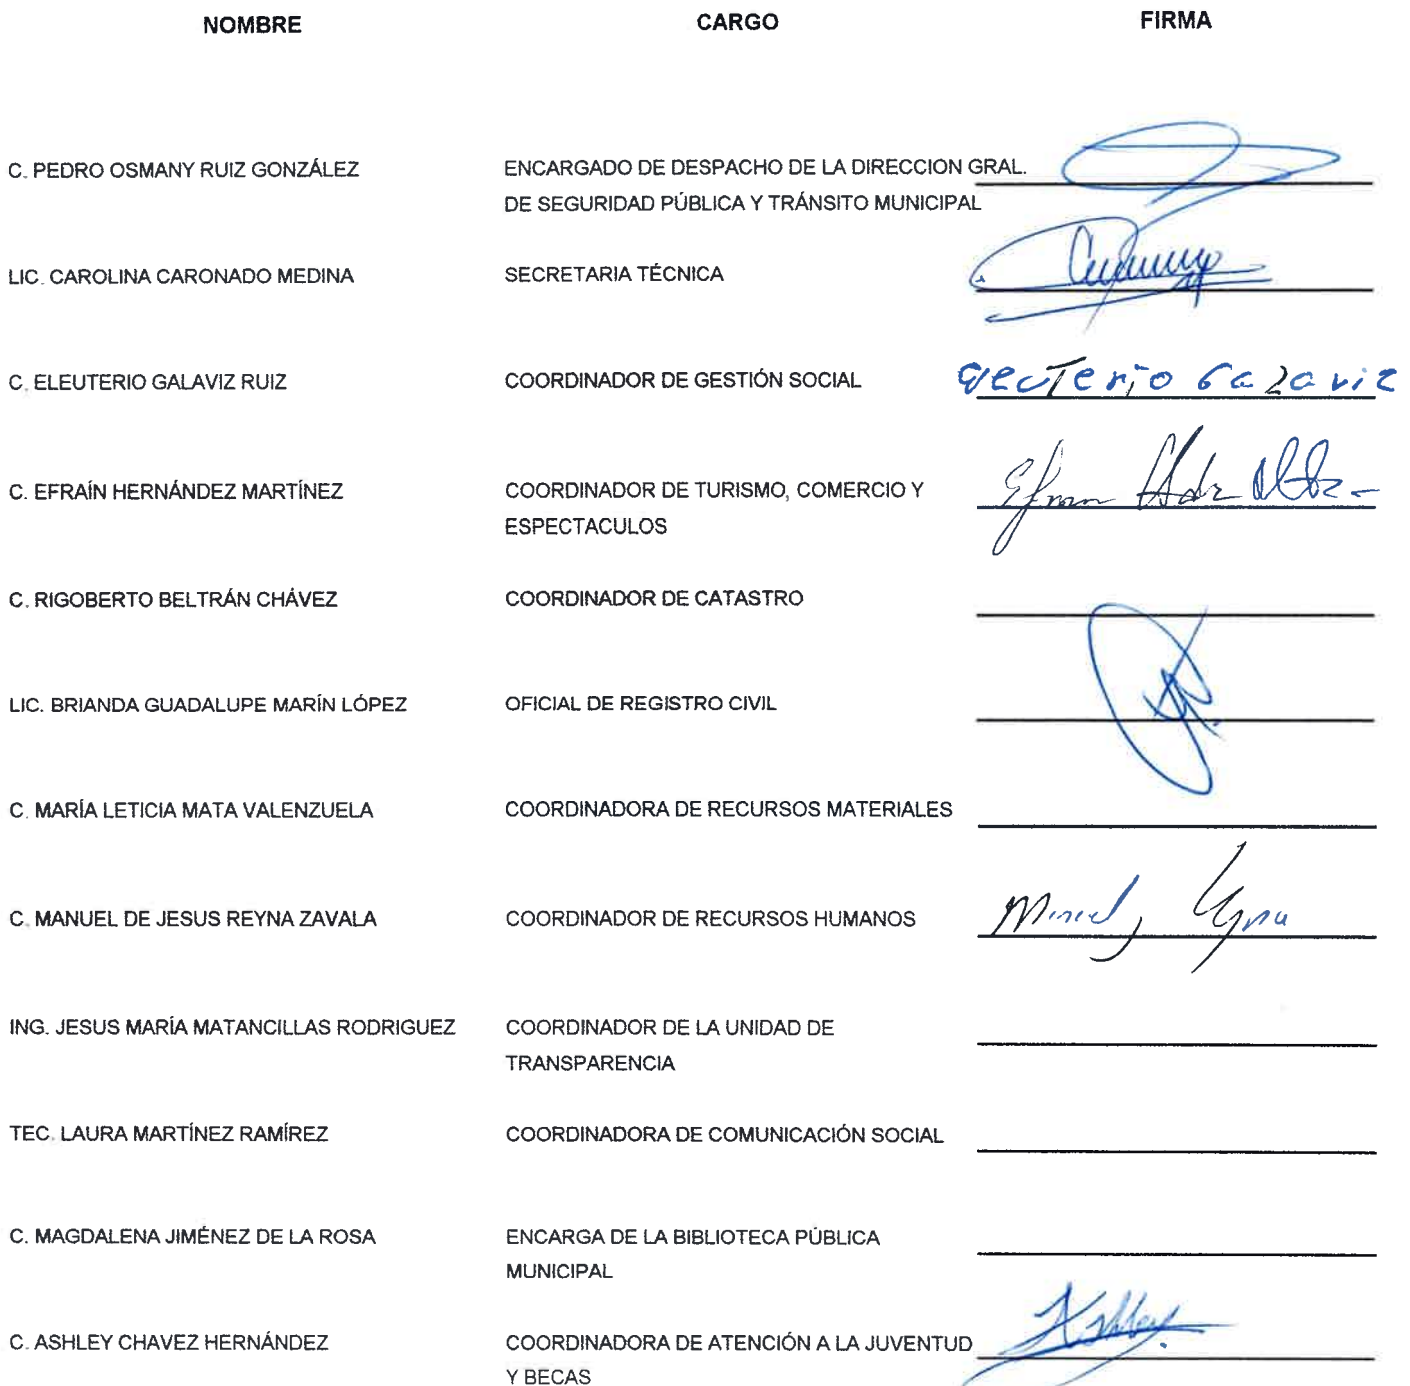 NOMBRE CARGO FIRMA
C. PEDRO OSMANY RUIZ GONZÁLEZ ENCARGADO DE DESPACHO DE LA DIRECCION GRAL.
DE SEGURIDAD PÚBLICA Y TRÁNSITO MUNICIPAL
LIC. CAROLINA CARONADO MEDINA SECRETARIA TÉCNICA
C. ELEUTERIO GALAVIZ RUIZ COORDINADOR DE GESTIÓN SOCIAL
C. EFRAÍN HERNÁNDEZ MARTÍNEZ COORDINADOR DE TURISMO, COMERCIO Y
ESPECTACULOS
C. RIGOBERTO BELTRÁN CHÁVEZ COORDINADOR DE CATASTRO
LIC. BRIANDA GUADALUPE MARÍN LÓPEZ OFICIAL DE REGISTRO CIVIL
C. MARÍA LETICIA MATA VALENZUELA COORDINADORA DE RECURSOS MATERIALES
C. MANUEL DE JESUS REYNA ZAVALA COORDINADOR DE RECURSOS HUMANOS
ING. JESUS MARÍA MATANCILLAS RODRIGUEZ COORDINADOR DE LA UNIDAD DE
TRANSPARENCIA
TEC. LAURA MARTÍNEZ RAMÍREZ COORDINADORA DE COMUNICACIÓN SOCIAL
C. MAGDALENA JIMÉNEZ DE LA ROSA ENCARGA DE LA BIBLIOTECA PÚBLICA
MUNICIPAL
C. ASHLEY CHAVEZ HERNÁNDEZ COORDINADORA DE ATENCIÓN A LA JUVENTUD Ashley
Y BECAS